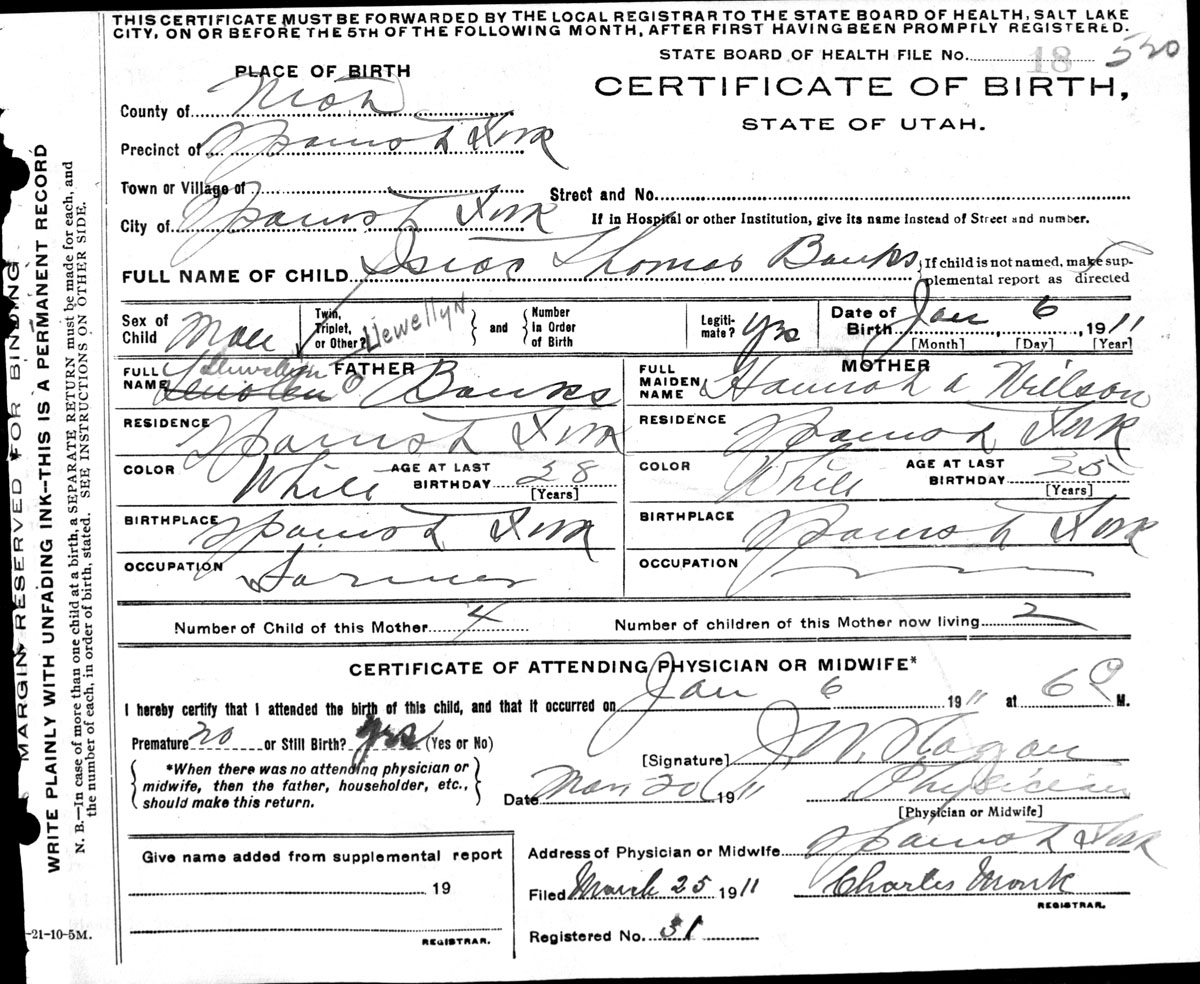 THIS CERTIFICATE MUST BE FORWARDED BY THE LOCAL REGISTRAR TO THE STATE BOARD OF HEALTH, SALT LAKE
CITY, ON OR BEFORE THE 5TH OF THE FOLLOWING MONTH, AFTER FIRST HAVING BEEN PROMPTLY REGISTERED.
STATE BOARD OF HEALTH FILE No. 18 520
PLACE OF BIRTH
CERTIFICATE OF BIRTH,
STATE OF UTAH.
County of
Precinct of Spanish Fork
Town or Village of
Street and No.
City of Spanish Fork
If in Hospital or other Institution, give its name instead of Street and number.
FULL NAME OF CHILD Thomas Banks
If child is not named, make sup-
plemental report as directed
Sex of Child Male
Twin, Triplet, or Other?
Llewellyn
and
Number in Order of Birth
Legiti-mate? Yes
Date of Birth Jan 6, 1911
[Month] [Day] [Year]
FATHER
FULL NAME Llewellyn Banks
RESIDENCE Spanish Fork
COLOR White
AGE AT LAST BIRTHDAY 28
[Years]
BIRTHPLACE Spanish Fork
OCCUPATION Farmer
MOTHER
FULL MAIDEN NAME Hannah A Neilson
RESIDENCE Spanish Fork
COLOR White
AGE AT LAST BIRTHDAY 25
[Years]
BIRTHPLACE Spanish Fork
OCCUPATION
Number of Child of this Mother 4
Number of children of this Mother now living 2
CERTIFICATE OF ATTENDING PHYSICIAN OR MIDWIFE*
I hereby certify that I attended the birth of this child, and that it occurred on Jan 6 1911 at 6 P M.
Premature no or Still Birth? Yes (Yes or No)
*When there was no attending physician or
midwife, then the father, householder, etc.,
should make this return.
[Signature] J. W. Hagan
Date Mar 20 1911
Physician
[Physician or Midwife]
Give name added from supplemental report
19
REGISTRAR.
Address of Physician or Midwife Spanish Fork
Filed March 25 1911
Charles Monk
REGISTRAR.
Registered No. 31
-21-10-5M.
MARGIN RESERVED FOR BINDING
WRITE PLAINLY WITH UNFADING INK—THIS IS A PERMANENT RECORD
N. B.—In case of more than one child at a birth, a SEPARATE RETURN must be made for each, and
the number of each, in order of birth, stated. SEE INSTRUCTIONS ON OTHER SIDE.